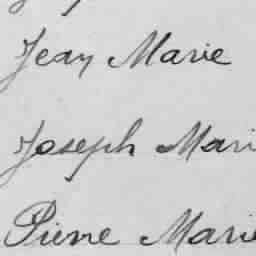 Jean Marie
Joseph Mari
Pierre Marie